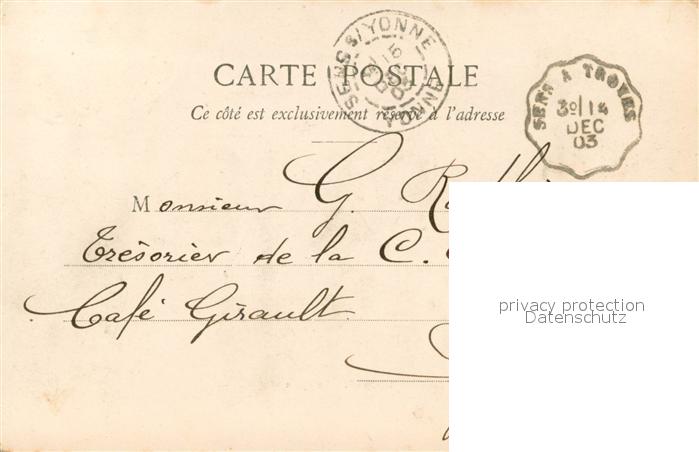 SENS S/YONNE
YONNE
CARTE POSTALE
Ce côté est exclusivement réservé à l'adresse
SENS A TROYES
3º/14
DEC
03
Monsieur G.
Trésorier de la C.
Café Girault
privacy protection
Datenschutz